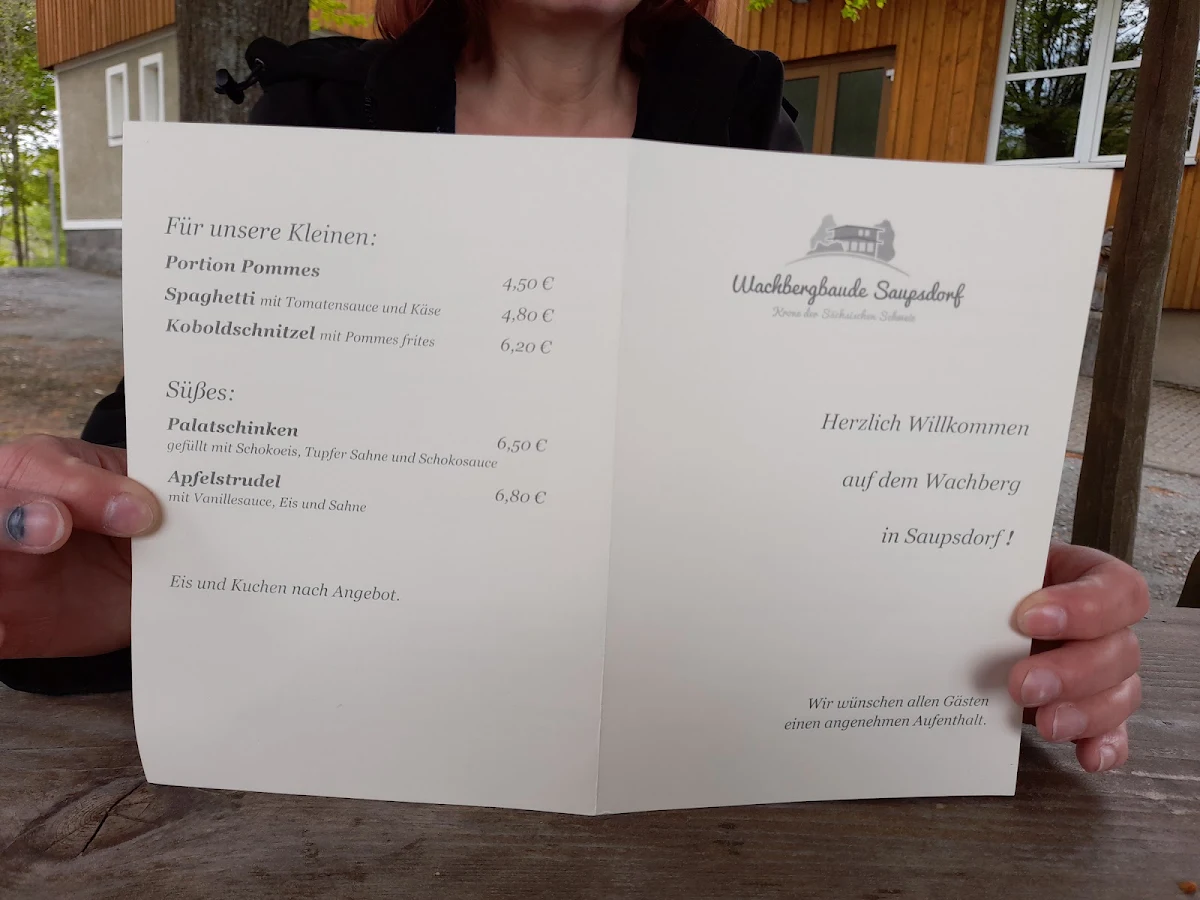 Für unsere Kleinen:
Portion Pommes 4,50 €
Spaghetti mit Tomatensauce und Käse 4,80 €
Koboldschnitzel mit Pommes frites 6,20 €
Süßes:
Palatschinken 6,50 €
gefüllt mit Schokoeis, Tupfer Sahne und Schokosauce
Apfelstrudel 6,80 €
mit Vanillesauce, Eis und Sahne
Eis und Kuchen nach Angebot.
Wachbergbaude Saupsdorf
Krone der Sächsischen Schweiz
Herzlich Willkommen
auf dem Wachberg
in Saupsdorf !
Wir wünschen allen Gästen
einen angenehmen Aufenthalt.